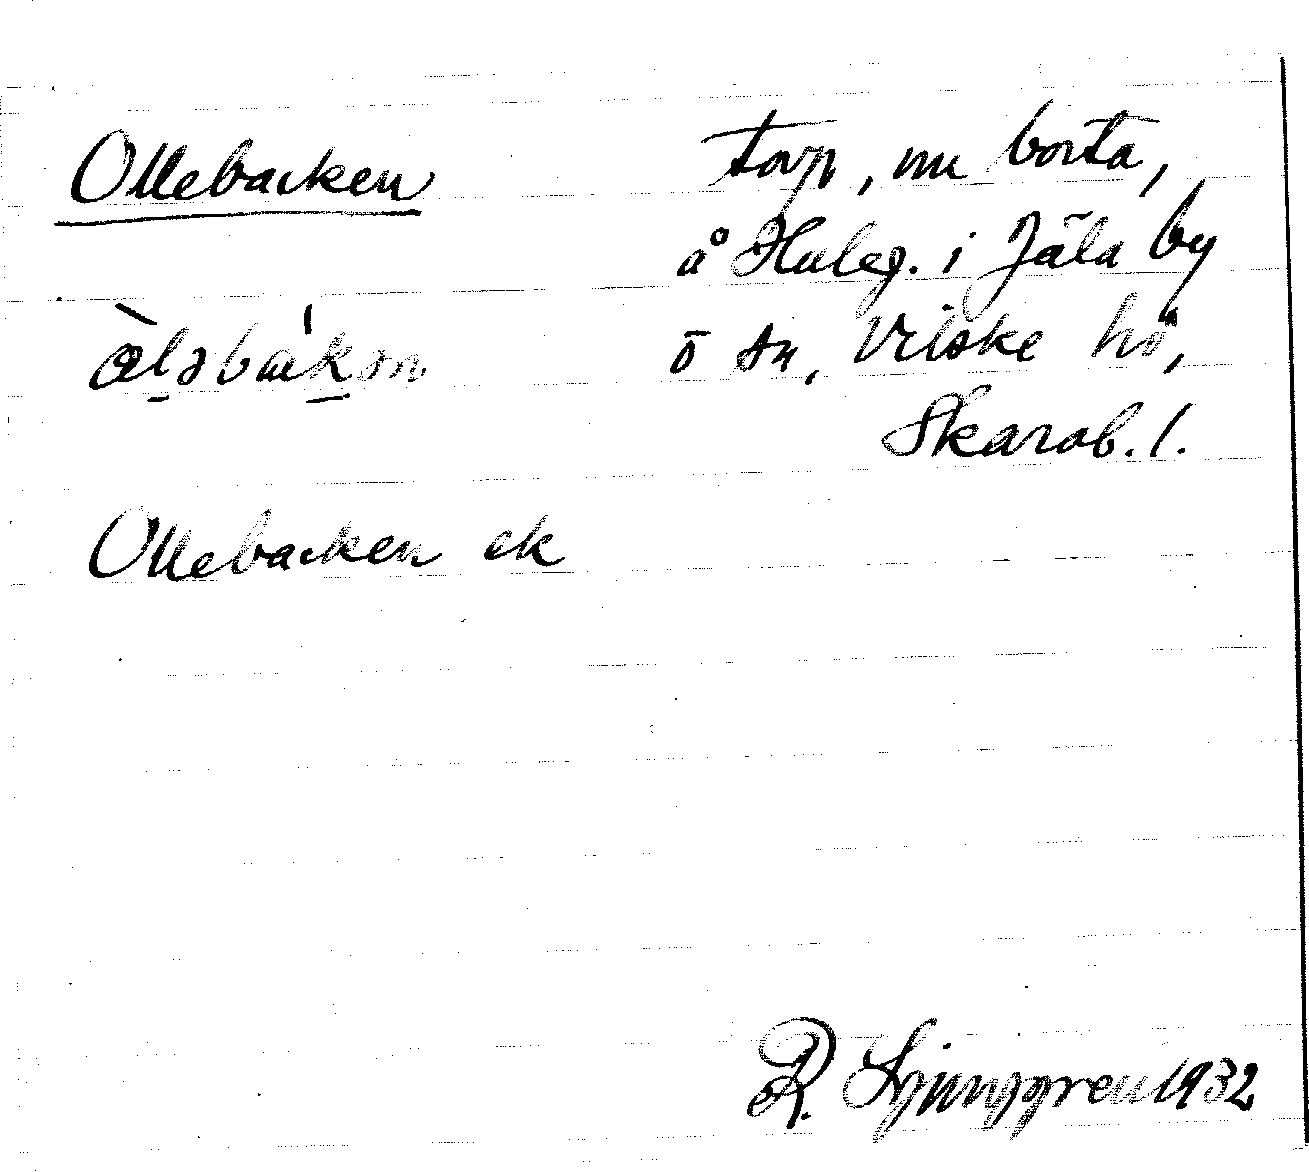 Ollebacken
torp, nu borta,
å Huleg. i Jäla by
ö sn, Vilske hd,
Skarab. l.
Ollebacken ek
R. Ljunggren 1932